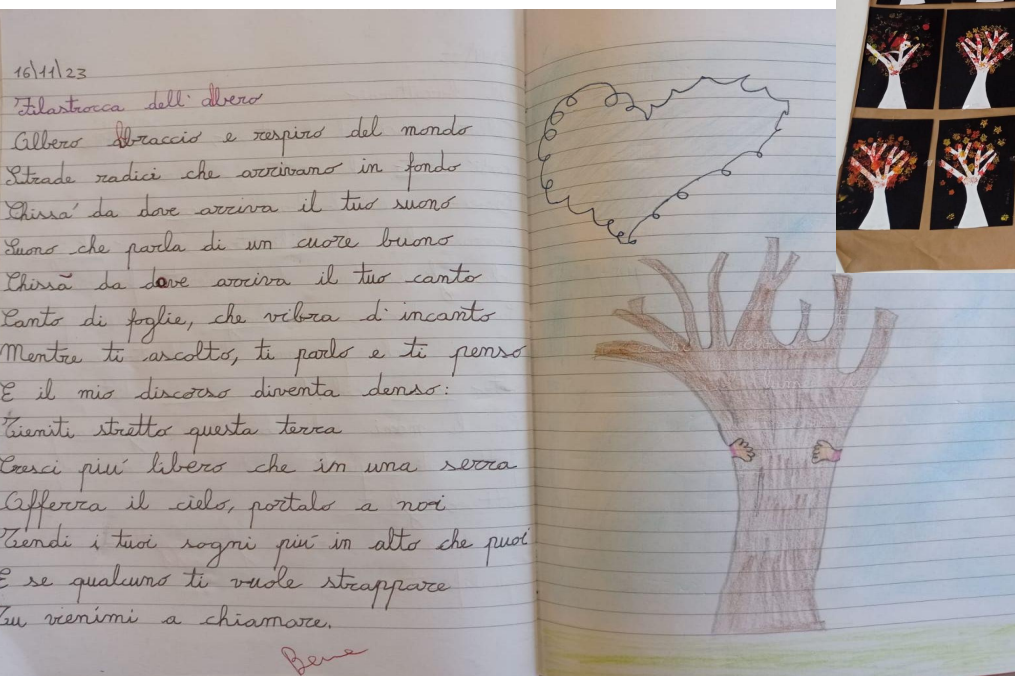 16\11\23
Filastrocca dell' albero
Albero abraccio e respiro del mondo
Strade radici che arrivano in fondo
Chissa' da dove arriva il tuo suono
Suono che parla di un cuore buono
Chissà da dove arriva il tuo canto
Canto di foglie, che vibra d' incanto
Mentre ti ascolto, ti parlo e ti penso
E il mio discorso diventa denso:
Tieniti stretto questa terra
Cresci piú libero che in una serra
Afferra il cielo, portalo a noi
Tendi i tuoi sogni piú in alto che puoi
E se qualcuno ti vuole strappare
Tu vienimi a chiamare.
Bene